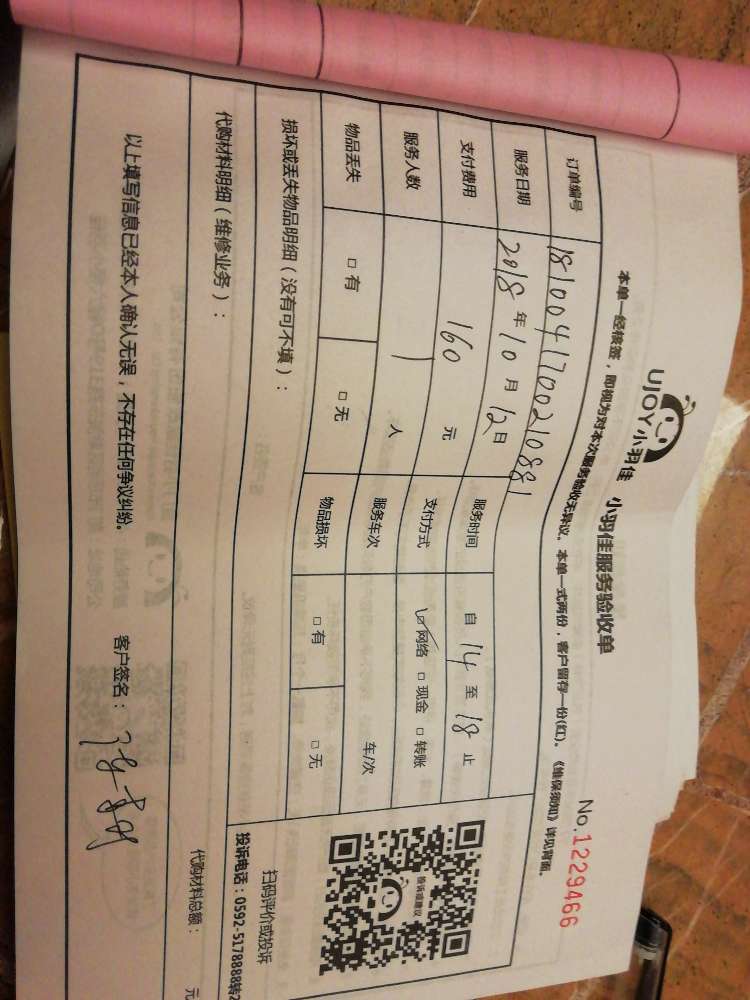 UJOY小羽佳 小羽佳服务验收单
No.1229466
本单一经核签，即视为对本次服务验收无异议。本单一式两份，客户留存一份(红)。《维保须知》详见背面。
订单编号 1810041700210881
服务日期 2018年10月12日 服务时间 自 14 至 18 止
支付费用 160 元 支付方式 ☑网络 □现金 □转账
服务人数 1 人 服务车次 车/次
物品丢失 □有 □无 物品损坏 □有 □无
损坏或丢失物品明细（没有可不填）：
投诉或建议
扫码评价或投诉
投诉电话：0592-5178888转2
代购材料明细（维修业务）：
代购材料总额： 元
以上填写信息已经本人确认无误，不存在任何争议纠纷。 客户签名：